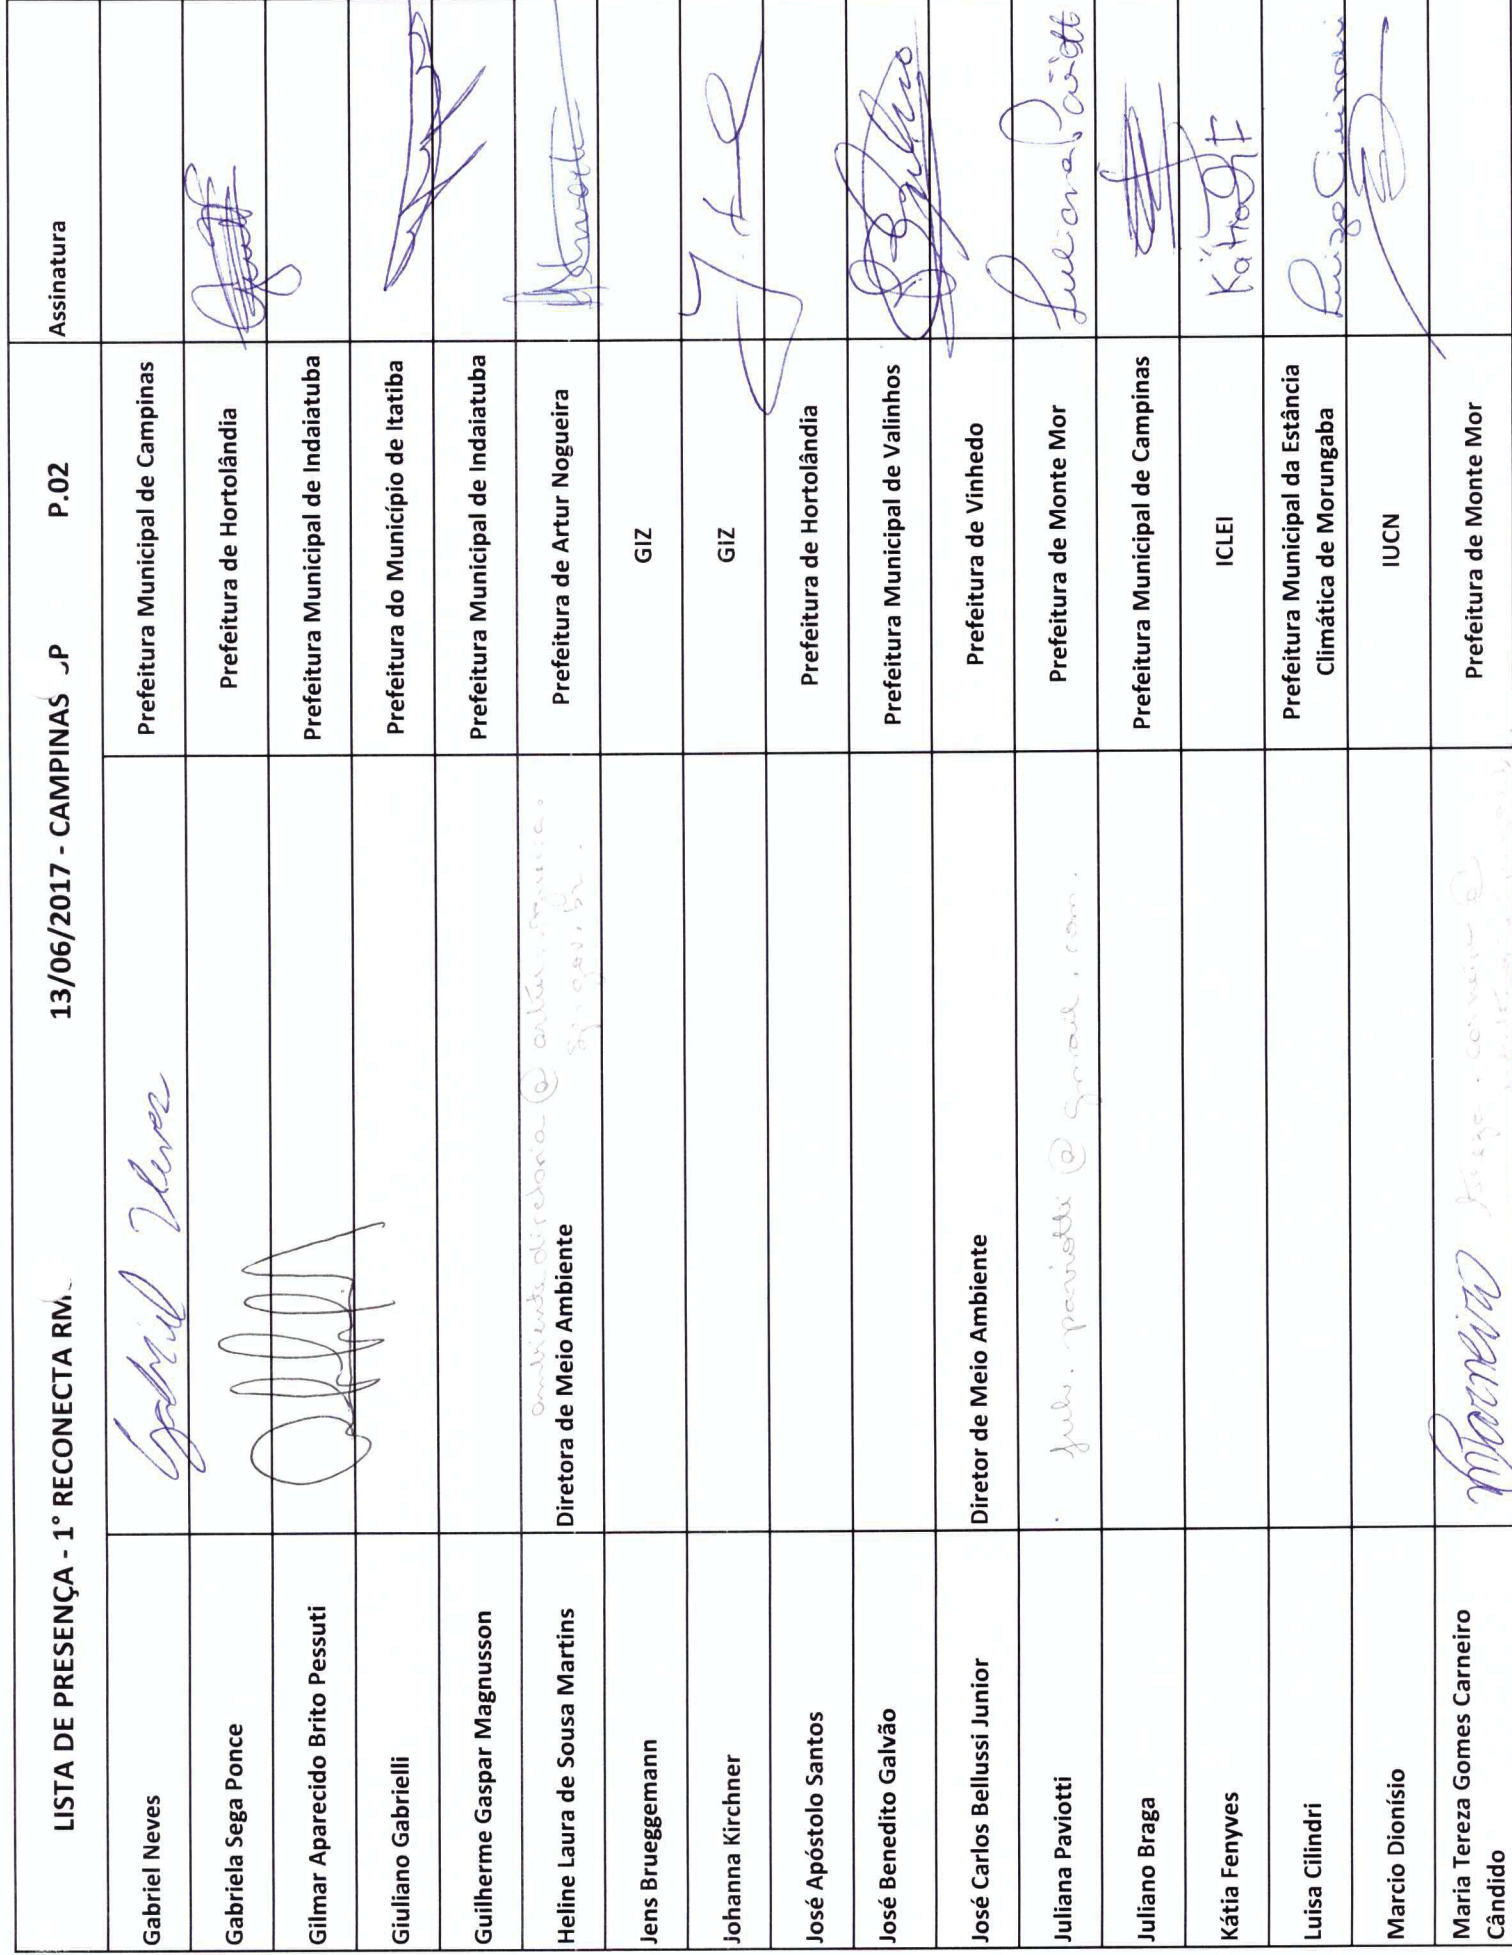 LISTA DE PRESENÇA - 1° RECONECTA RM 13/06/2017 - CAMPINAS P P.02
Assinatura
Gabriel Neves Gabriel Neves Prefeitura Municipal de Campinas
Gabriela Sega Ponce Prefeitura de Hortolândia
Gilmar Aparecido Brito Pessuti Prefeitura Municipal de Indaiatuba
Giuliano Gabrielli Prefeitura do Município de Itatiba
Guilherme Gaspar Magnusson Prefeitura Municipal de Indaiatuba
ambiente.diretoria@
sp.gov.br.
Heline Laura de Sousa Martins Diretora de Meio Ambiente Prefeitura de Artur Nogueira
Jens Brueggemann GIZ
Johanna Kirchner GIZ
José Apóstolo Santos Prefeitura de Hortolândia
José Benedito Galvão Prefeitura Municipal de Valinhos
José Carlos Bellussi Junior Diretor de Meio Ambiente Prefeitura de Vinhedo
Juliana Paviotti juli.paviotti@gmail.com. Prefeitura de Monte Mor Juliana Paviotti
Juliano Braga Prefeitura Municipal de Campinas
Kátia Fenyves ICLEI Kátia
Luisa Cilindri Prefeitura Municipal da Estância
Climática de Morungaba
Marcio Dionísio IUCN
Maria Tereza Gomes Carneiro
Cândido
Prefeitura de Monte Mor